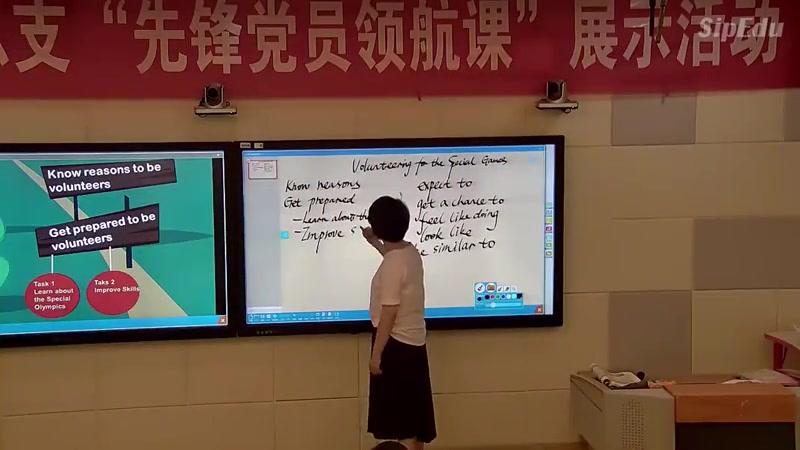 支 “先锋党员领航课” 展示活动
SipEdu
Know reasons to be
volunteers
Get prepared to be
volunteers
Task 1
Learn about
the Special
Olympics
Taks 2
Improve Skills
Volunteering for the Special Games
Know reasons
Get prepared
- Learn about
- Improve s
expect to
get a chance to
feel like doing
look like
similar to